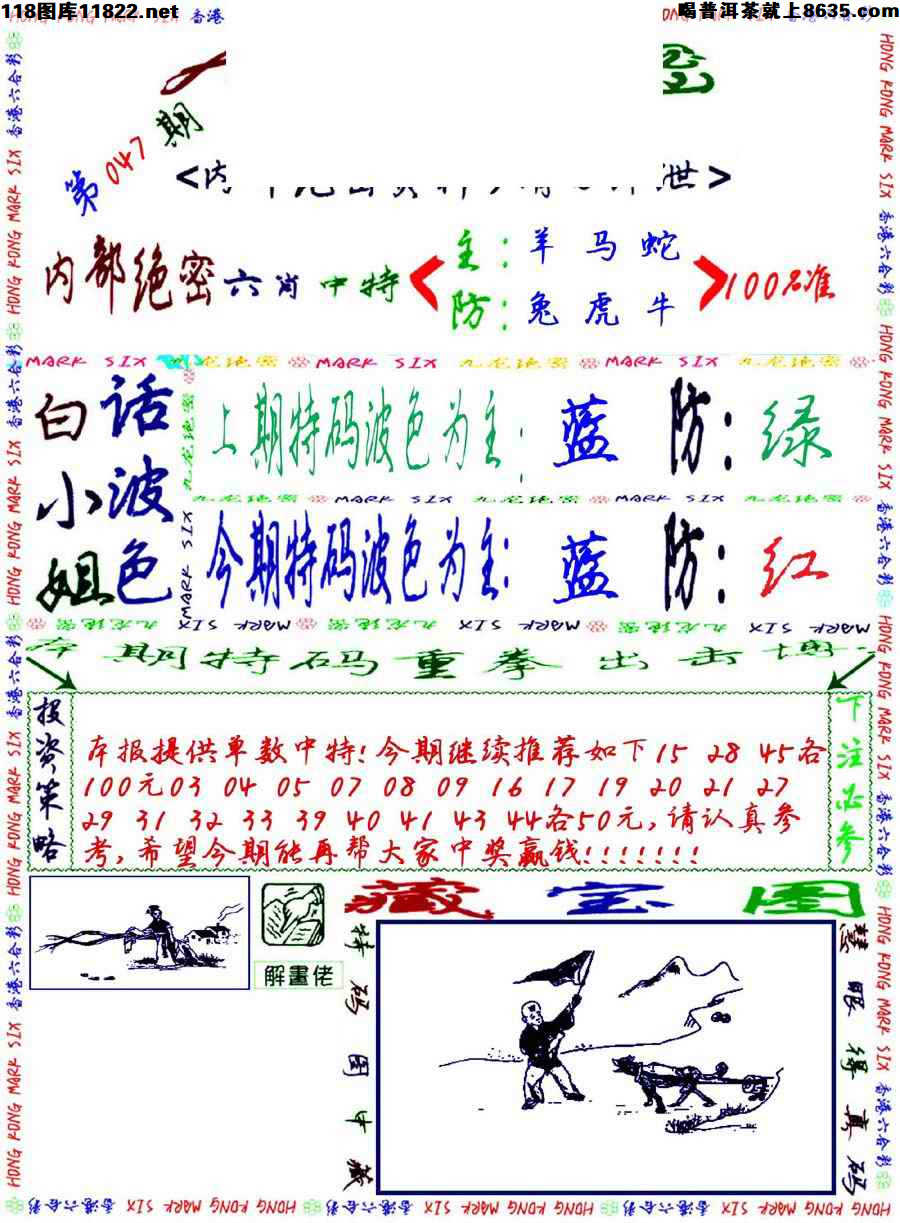 118图库11822.net
香港
喝普洱茶就上8635.com
HONG KONG MARK SIX 香港六合彩
第047期
内部绝密六肖中特
主:羊马蛇
防:兔虎牛
100%准
MARK SIX 九龙绝密 MARK SIX 九龙绝密 MARK SIX 九龙绝密
白小姐
话波色
上期特码波色为主:蓝 防:绿
九龙绝密 MARK SIX 九龙绝密 MARK SIX 九龙绝密
今期特码波色为主:蓝 防:红
九龙绝密 MARK SIX 九龙绝密 MARK SIX 九龙绝密 MARK SIX
期特码重拳出击
投资策略
本报提供单数中特!今期继续推荐如下15 28 45各
100元03 04 05 07 08 09 16 17 19 20 21 27
29 31 32 33 39 40 41 43 44各50元,请认真参
考,希望今期能再帮大家中奖赢钱!!!!!!!
下注必参
解畫佬
藏宝图
特码图中藏
慧眼得真码
HONG KONG MARK SIX 香港六合彩